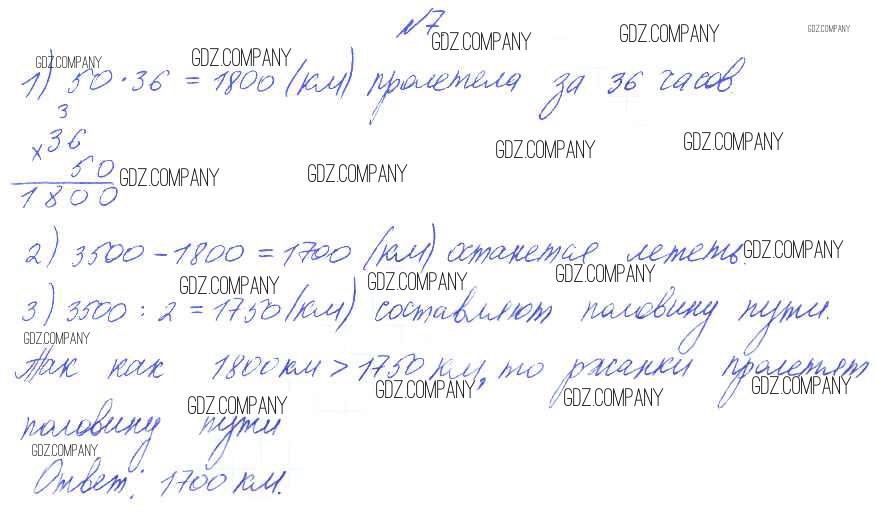 №7
GDZ.COMPANY GDZ.COMPANY GDZ.COMPANY GDZ.COMPANY GDZ.COMPANY
1) 50 · 36 = 1800 (км) пролетела за 36 часов.
3
× 36
50
GDZ.COMPANY GDZ.COMPANY GDZ.COMPANY GDZ.COMPANY
1800
2) 3500 - 1800 = 1700 (км) останется лететь.
GDZ.COMPANY GDZ.COMPANY GDZ.COMPANY GDZ.COMPANY
3) 3500 : 2 = 1750 (км) составляют половину пути.
GDZ.COMPANY
Так как 1800 км > 1750 км, то ржанки пролетят
GDZ.COMPANY GDZ.COMPANY GDZ.COMPANY GDZ.COMPANY
половину пути
GDZ.COMPANY
Ответ: 1700 км.